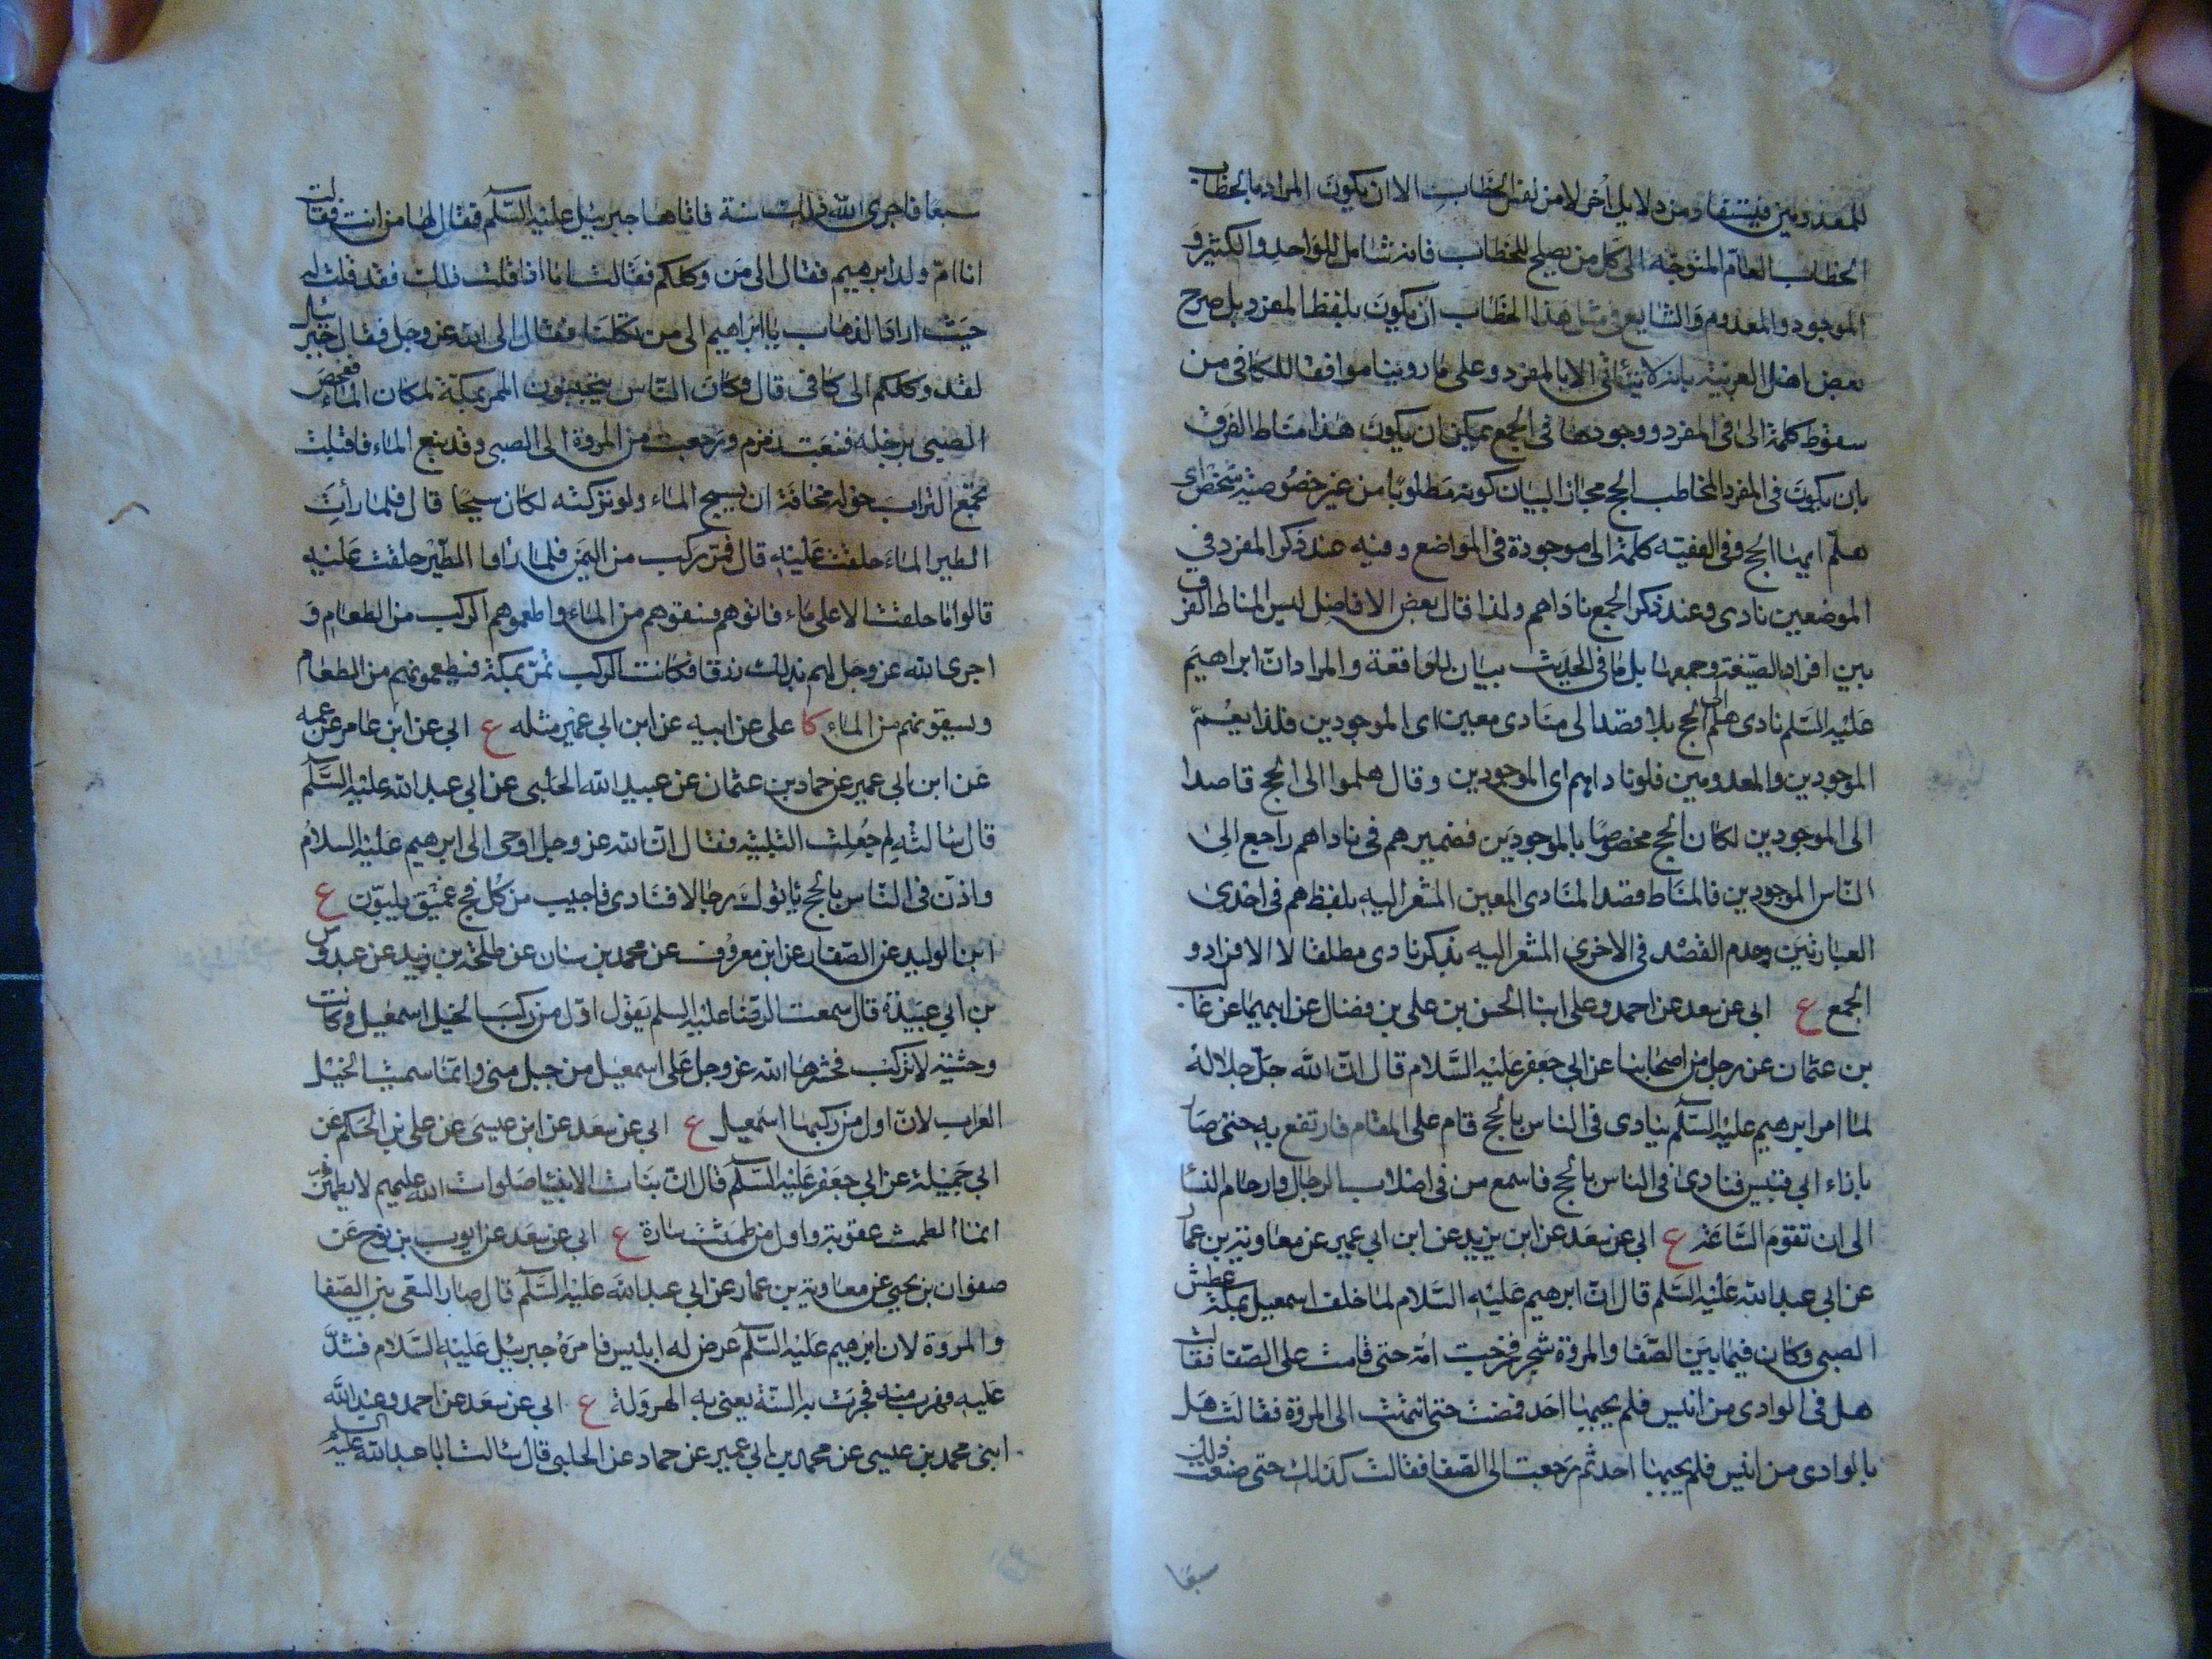 للمعدومين فيستفاد من دلايل أخر لا من نفس الخطاب الا ان يكون المراد بالخطاب
الخطاب العامّ المتوجّه الى كل من يصلح للخطاب فانه شامل للواحد والكثير و
الموجود والمعدوم والشايع في مثل هذا الخطاب ان يكون بلفظ المفرد بل صرح
بعض اهل العربية بانه لا يتأتى الا بالمفرد وعلى ما روينا موافقا للكافى من
سقوط كلمة الى فى المفرد ووجودها فى الجمع يمكن ان يكون هذا مناط الفرق
بان يكون فى المفرد المخاطب الحج مجازا لبيان كونه مطلوبًا من غير خصوصية شخص اى
هلمّ ايها الحج وفى الفقيه كلمة الى موجودة فى المواضع وفيه عند ذكر المفرد في
الموضعين نادى وعند ذكر الجمع ناداهم ولذا قال بعض الافاضل ليس المناط الفرق
بين افراد الصّيغة وجمعها بل ما فى الحديث بيان للواقعة والمراد انّ ابراهيم
عليه السلم نادى هلم الى الحج بلا قصد الى منادى معين اى الموجودين فلذا يعُمّ
الموجودين والمعدومين فلو ناداهم اى الموجودين وقال هلموا الى الحج قاصدا
الى الموجودين لكان الحج مخصوصًا بالموجودين فضمير هم فى ناداهم راجع الى
النّاس الموجودين فالمناط قصد المنادى المعين المشعر اليه بلفظ هم فى احدى
العبارتين وعدم القصد فى الاخرى المشعر اليه بذكر نادى مطلقا لا الافراد و
الجمع ع ابى عن سعد عن احمد وعلى ابنا الحسن بن على بن فضال عن ابيهما عن غالب
بن عثمان عن رجل من اصحابنا عن ابى جعفر عليه السّلام قال انّ الله جلّ جلاله
لمّا امر ابرهيم عليه السلم ينادى فى الناس بالحج قام على المقام فارتفع به حتى صار
بازاء ابى قبيس فنادى فى الناس بالحج فاسمع من فى اصلاب الرجال وارحام النساء
الى ان تقوم السّاعة ع ابى عن سعد عن ابن يزيد عن ابن ابى عمير عن معاوية بن عمار
عن ابى عبد الله عليه السّلم قال انّ ابرهيم عليه السّلام لما خلف اسمعيل بمكة عطش
الصبى وكان فيما بين الصّفا والمروة شجر فخرجت امّه حتى قامت على الصّفا فقالت
هل فى الوادى من انيس فلم يجيبها احد فمضت حتى انتهت الى المروة فقالت هل
بالوادى من انيس فلم يجيبها احد ثم رجعت الى الصّفا فقالت كذلك حتى صنعت ذلك
سبعًا
سبعًا فاجرى الله ذلك سنة فاتاها جبرئيل عليه السّلم فقال لها من انت فقالت
انا امّ ولد ابرهيم فقال الى من وكلكم فقالت اما اذا قلت ذلك فقد قلت له
حيث اراد الذهاب يا ابراهيم الى من تكلنا فقال الى الله عز وجل فقال جبرئيل
لقد وكلكم الى كافى قال وكان النّاس يتجنبون الممر بمكّة لمكان الماء ففحص
الصبى برجله فنبعت زمزم ورجعت من المروة الى الصبى وقد نبع الماء فاقبلت
تجمع التراب حوله مخافة ان يسيح الماء ولو تركته لكان سيحا قال فلما رأت
الطير الماء حلقت عليه قال فمرّ ركب من اليمن فلما رأوا الطّير حلقت عليه
قالوا ما حلقت الا على ماء فاتوهم فسقوهم من الماء واطعموهم الركب من الطعام و
اجرى الله عز وجل لهم بذلك رزقا فكانت الركب تمرّ بمكة فيطعمونهم من الطعام
ويسقونهم من الماء كا على عن ابيه عن ابن ابى عمير مثله ع ابى عن ابن عامر عن عمه
عن ابن ابى عمير عن حماد بن عثمان عن عبيد الله الحلبى عن ابى عبد الله عليه السّلم
قال سالته لم جُعلت التلبية فقال انّ الله عز وجل اوحى الى ابرهيم عليه السلام
واذّن فى النّاس بالحج يأتوك رجالا فنادى فاجيب من كل فج عميق يلبّون ع
ابن الوليد عن الصّفار عن ابن معروف عن محمد بن سنان عن طلحة بن زيد عن عبدوس
بن ابى عبيدة قال سمعت الرضا عليه السلم يقول اوّل من ركب الخيل اسمعيل وكانت
وحشية لا تركب فحشرها الله عز وجل على اسمعيل من جبل منى وانّما سميت الخيل
العراب لانّ اول من ركبها اسمعيل ع ابى عن سعد عن ابن عيسى عن على بن الحكم عن
ابى جميلة عن ابى جعفر عليه السّلم قال انّ بنات الانبيا صلوات الله عليهم لا يطمثن
انما الطمث عقوبة واول من طمثت سارة ع ابى عن سعد عن ايوب بن نوح عن
صفوان بن يحيى عن معاوية بن عمار عن ابى عبد الله عليه السّلم قال صار السّعى بين الصّفا
والمروة لان ابرهيم عليه السّلم عرض له ابليس فامره جبرئيل عليه السّلام فشدّ
عليه فهرب منه فجرت به السّنّة يعنى به الهرولة ع ابى عن سعد عن احمد وعبد الله
ابنى محمد بن عيسى عن محمد بن ابى عمير عن حماد عن الحلبى قال سالت ابا عبد الله عليه السلم